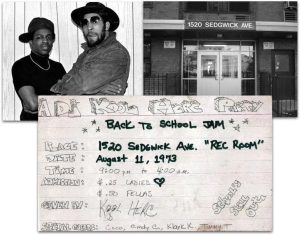 1520 SEDGWICK AVE.
A DJ KOOL HERC PARTY
BACK TO SCHOOL JAM
PLACE: 1520 SEDGWICK AVE. "REC ROOM"
DATE: August 11, 1973
TIME: 9:00 pm to 4:00 a.m.
$.25 LADIES
$.50 FELLAS
GIVEN BY: KOOL HERC
SPECIAL GUESTS: Coco, Cindy C., Klark K., Timmy T.